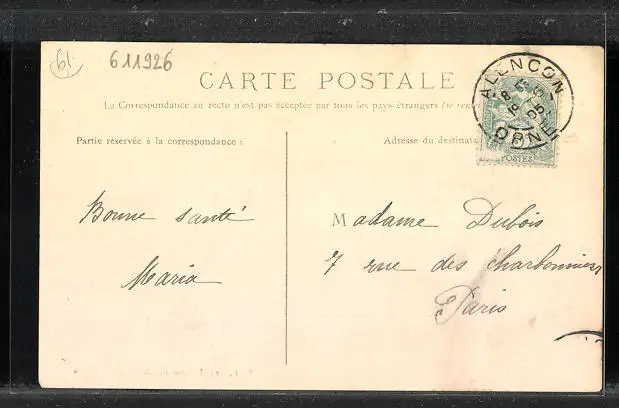 61
611926
CARTE POSTALE
La Correspondance au recto n'est pas acceptée par tous les pays étrangers (se rensei
Partie réservée à la correspondance :
Adresse du destinata
ALENCON
ORNE
POSTES
Bonne santé
Maria
Madame Dubois
7 rue des Charbonniers
Paris